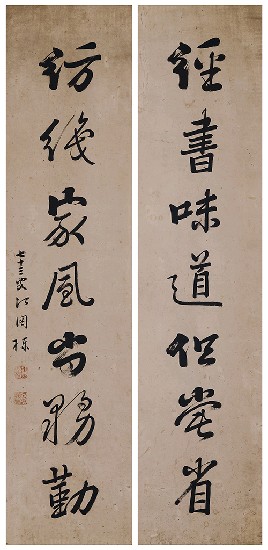 經書味道但常省
紡織家風尚務勤
七十三叟國棟